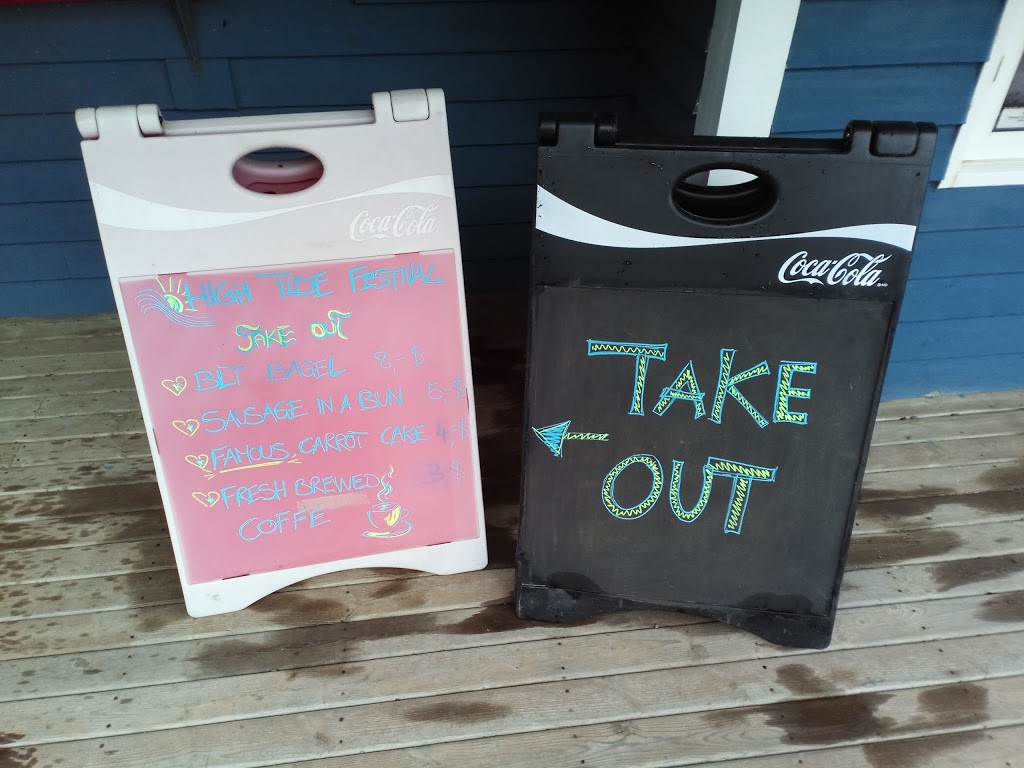 Coca-Cola
HIGH TIDE FESTIVAL
TAKE OUT
BLT BAGEL 8,-$
SAUSAGE IN A BUN 5,-$
FAMOUS CARROT CAKE 4,-$
FRESH BREWED 3,-$
COFFE
Coca-Cola
TAKE
OUT